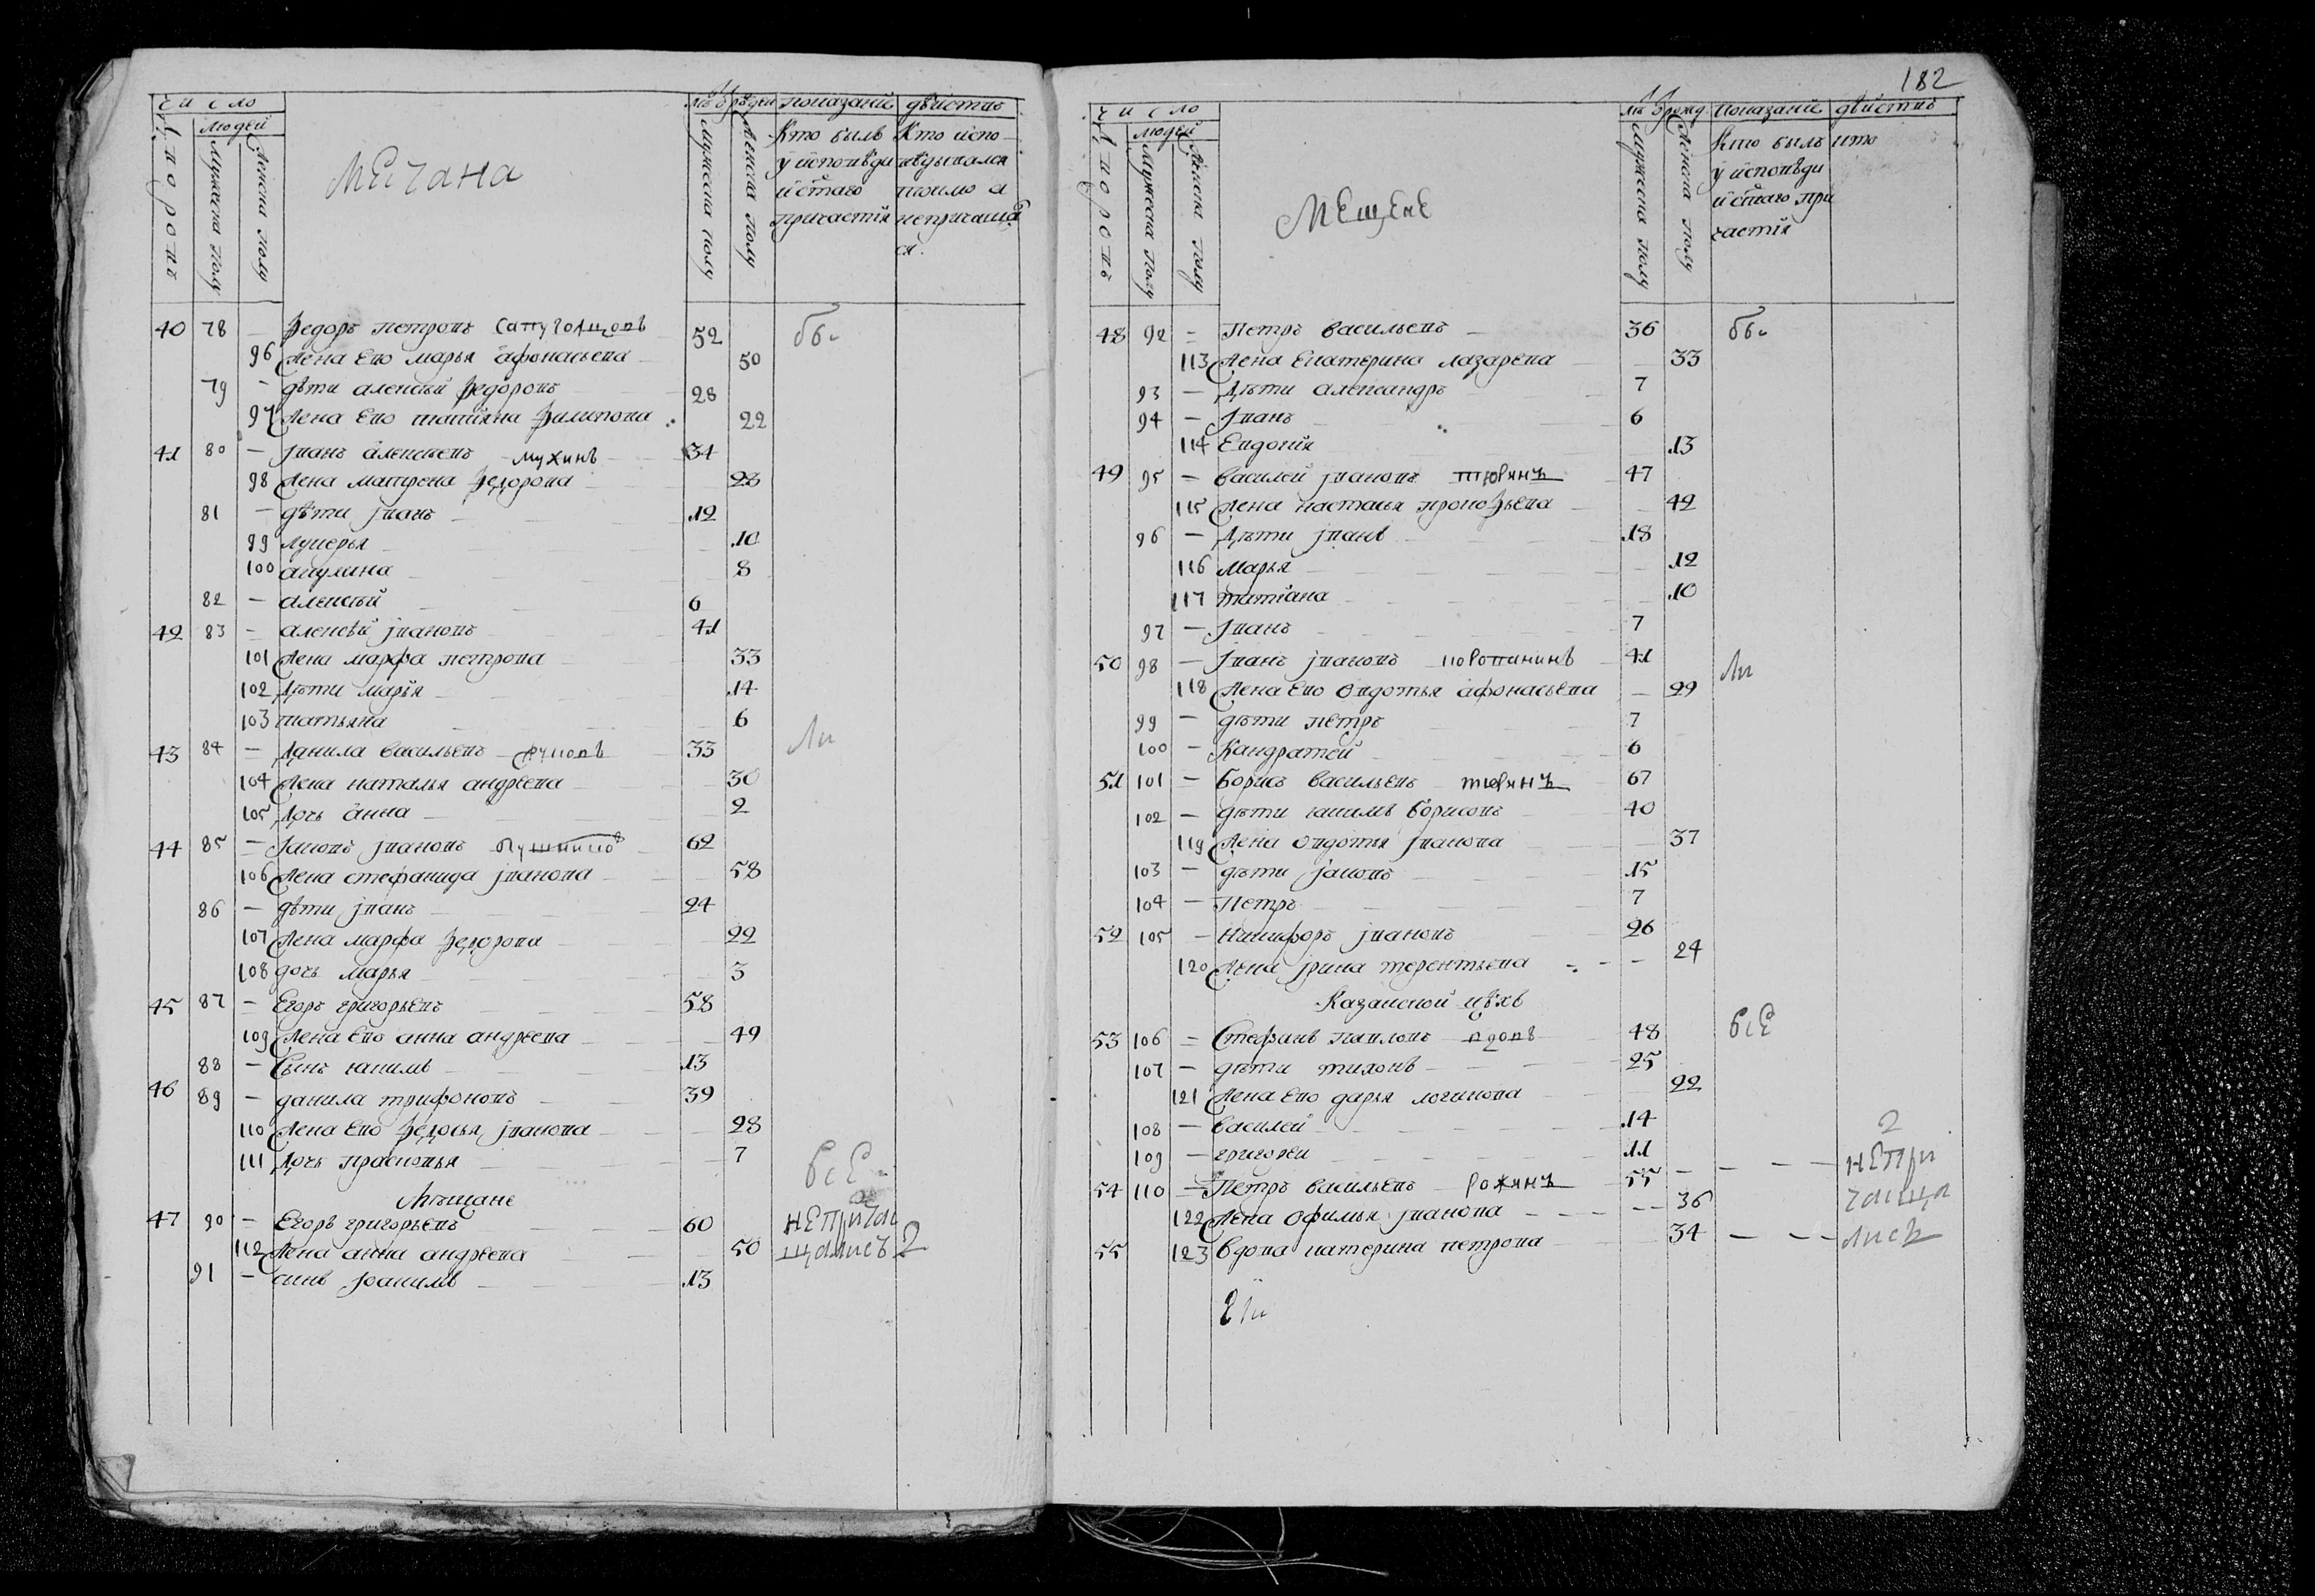 число
людей
дворовъ
Мужеска полу
Женска полу
мѣщана
Мужеска полу
Женска полу
показаніе дѣйства
Кто былъ
у исповѣди
и стаго
причастія
Кто испо
вѣдывался
токмо а
непричаща
ся.
40 78 — Федоръ петровъ 52 бы
96 Жена Ево марья афонасьева 50
79 — дѣти алексѣй Федоровъ 28
97 Жена Ево татіяна Филипова 22
41 80 — Iванъ алексѣевъ мухинъ 34
98 Жена матрена Федорова 23
81 — дѣти Iванъ 12
99 лукерья 10
100 акулина 8
82 — алексѣй 6
42 83 — алексѣй Iвановъ 41
101 Жена марфа петрова 33
102 Дѣти марїя 14
103 татьяна 6
43 84 — Данила васильевъ 33 ли
104 Жена наталья андреева 30
105 Дочь анна 2
44 85 — Iаковъ Iвановъ 62
106 Жена стефанида Iванова 58
86 — дѣти Iванъ 24
107 Жена марфа Федорова 22
108 дочь марья 3
45 87 — Егоръ григорьевъ 58
109 Жена Ево анна андреева 49
88 — Сынъ якимъ 13
46 89 — данила трифоновъ 39
110 Жена Ево Федосья Iванова 28
111 Дочь прасковья 7
всЕ
Мѣщане
47 90 — Егоръ григорьевъ 60 нЕприча
112 Жена анна андреева 50 щались 2
91 — синъ Iоакимъ 13
182
число
людей
дворовъ
Мужеска полу
Женска полу
МЕщЕнЕ
Мужеска полу
Женска полу
показаніе дѣйства
Кто былъ
у исповѣди
и стаго при
частія
кто
48 92 — Петръ васильевъ 36 бы
113 Жена Екатерина лазарева 33
93 — Дѣти александръ 7
94 — Iванъ 6
114 Евдокия 13
49 95 — василей Iвановъ тюринъ 47
115 Жена настасья прокофьева 42
96 — Дѣти Iванъ 18
116 марья 12
117 татіана 10
97 — Iванъ 7
50 98 — Iванъ Iвановъ коровининъ 41 ли
118 Жена Ево овдотья афонасьева 29
99 — дѣти петръ 7
100 — Кандратей 6
51 101 — Борисъ васильевъ тюринъ 67
102 — дѣти якимъ борисовъ 40
119 Жена овдотья Iванова 37
103 — дѣти Iаковъ 15
104 — Петръ 7
52 105 — никифоръ Iвановъ 26
120 Жена Iрина терентьева 24
Казанской цѣхъ
53 106 — Стефанъ павловъ вдовъ 48 всЕ
107 — дѣти тихонъ 25
121 Жена Ево дарья логинова 22
108 — василей 14 2
109 — григореи 11 нЕпри
54 110 — Петръ васильевъ рожинъ 55 чаща
122 Жена офимья Iванова 36
55 123 вдова катерина петрова 34 лись